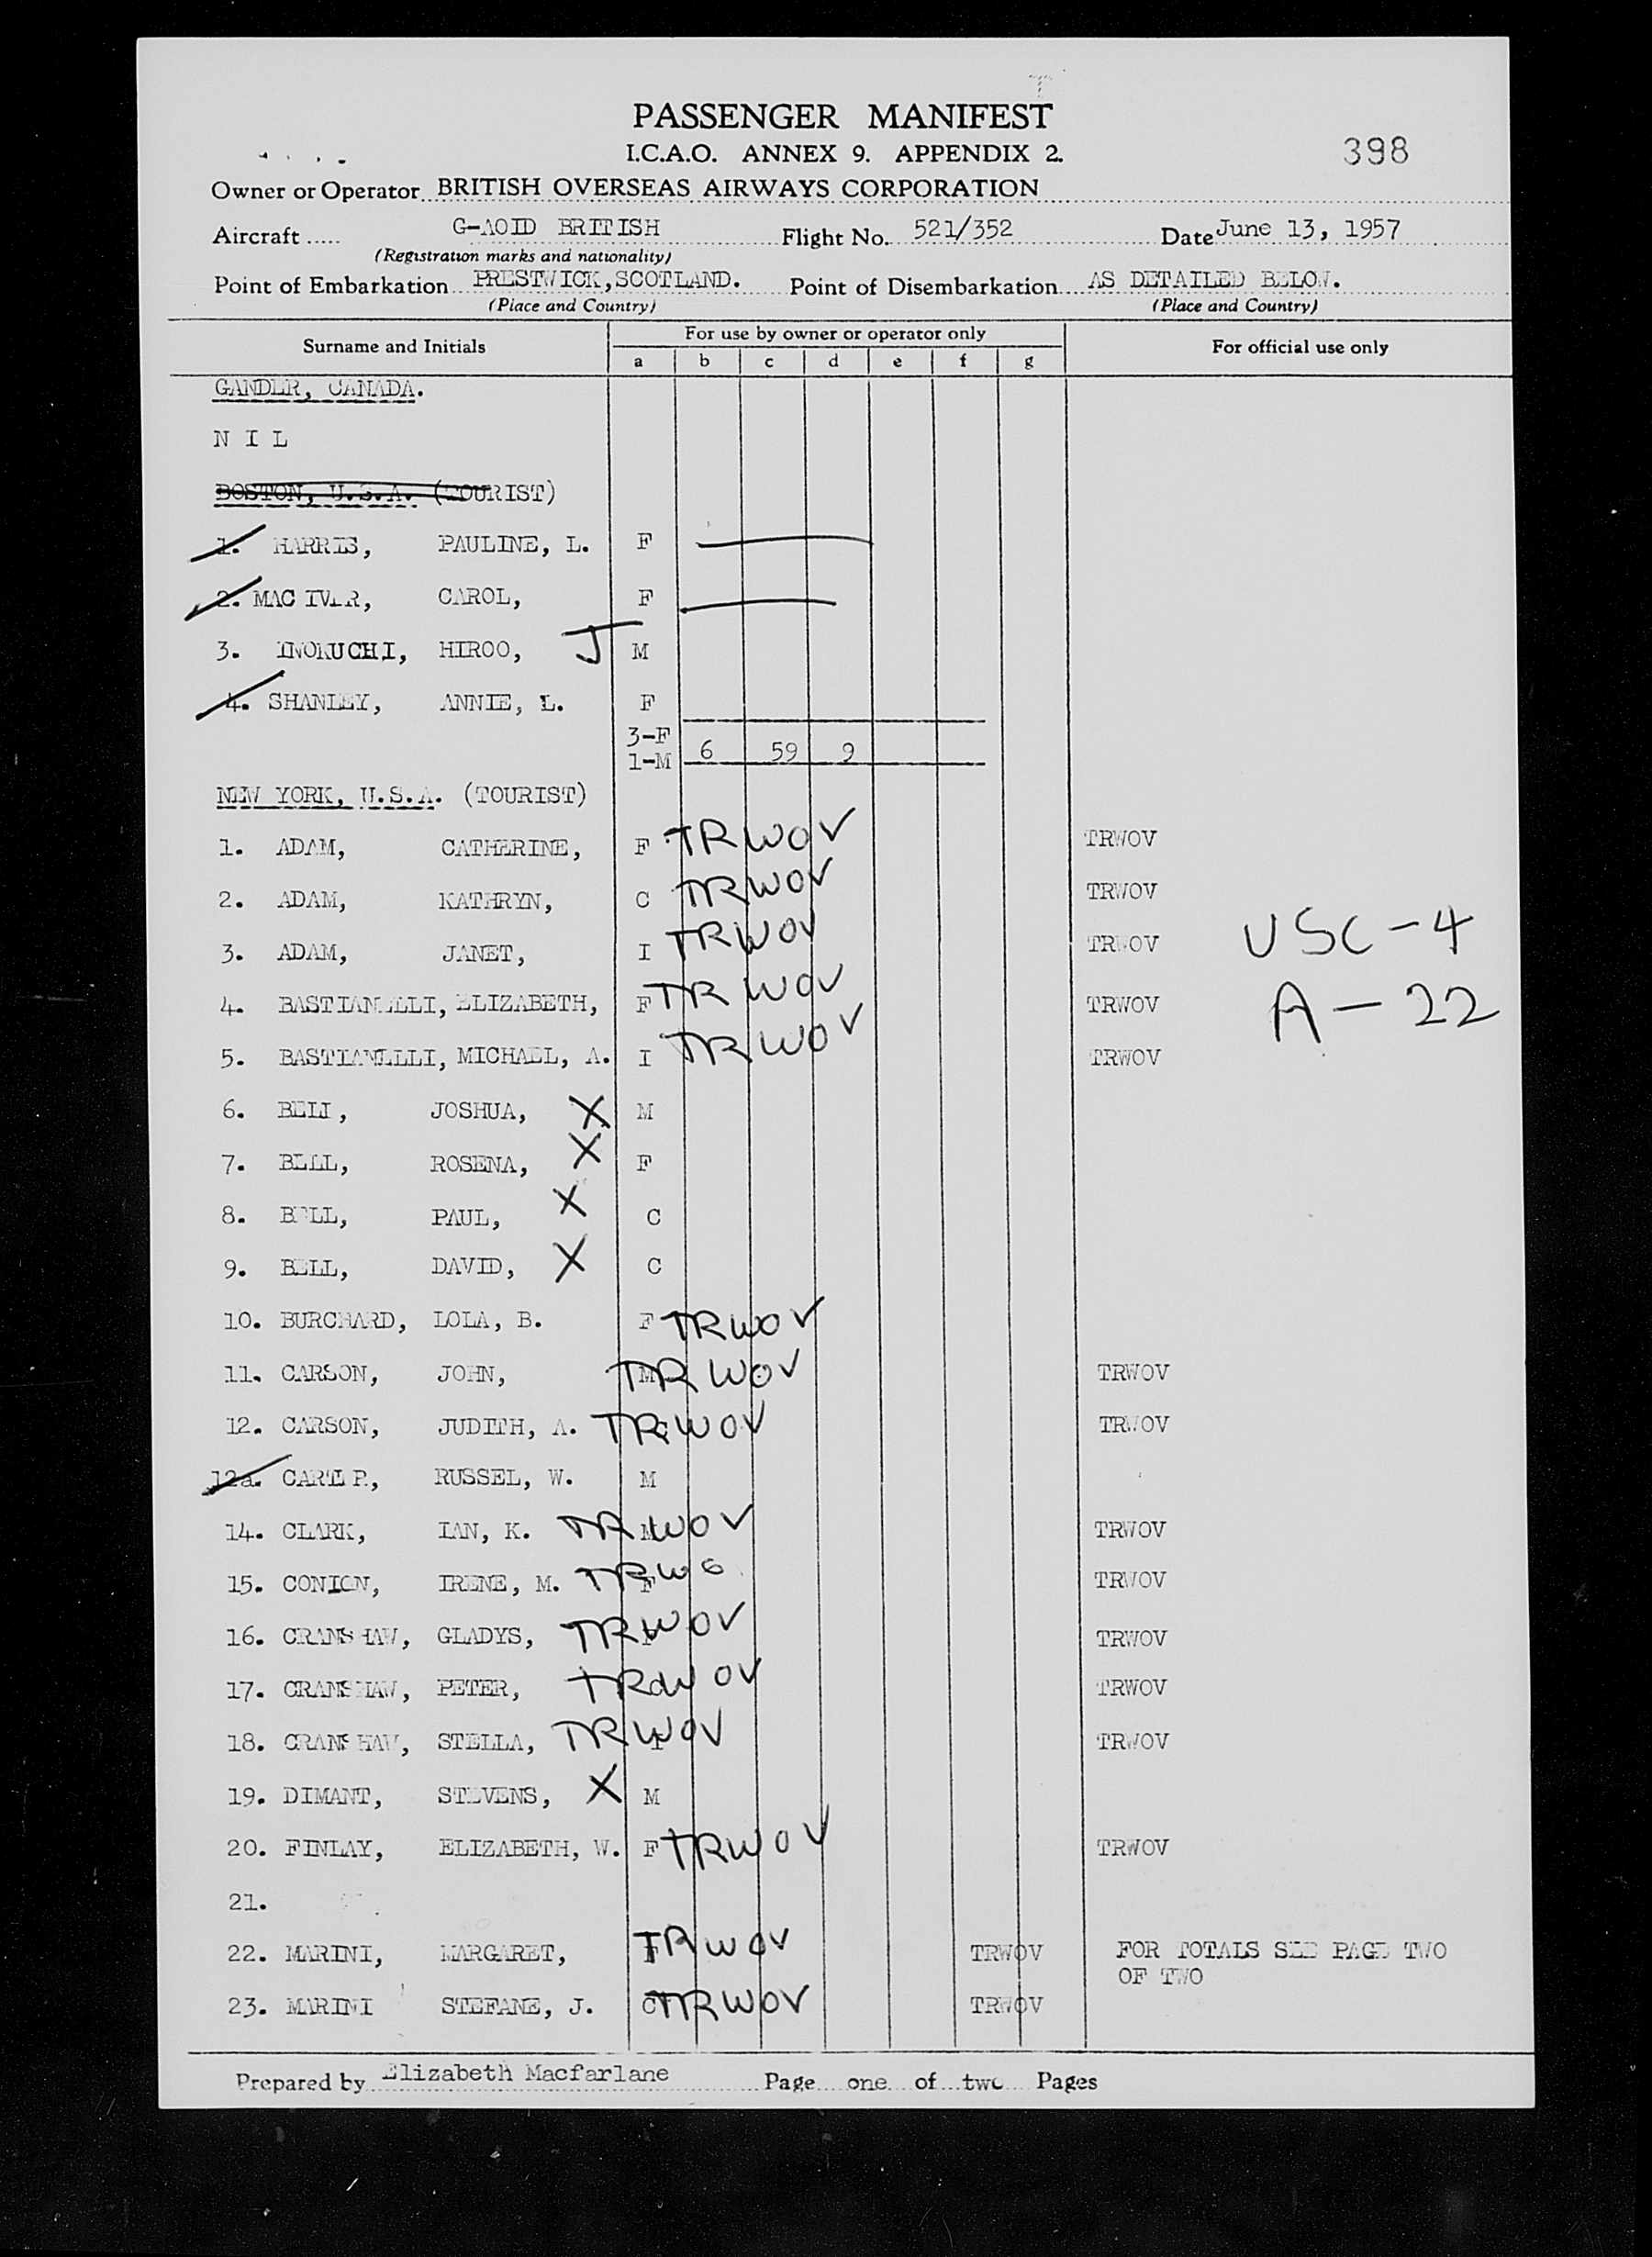 PASSENGER MANIFEST
I.C.A.O. ANNEX 9. APPENDIX 2.
398
Owner or Operator BRITISH OVERSEAS AIRWAYS CORPORATION
Aircraft ..... G-AOID BRITISH Flight No. 521/352 Date June 13, 1957
(Registration marks and nationality)
Point of Embarkation PRESTWICK, SCOTLAND. Point of Disembarkation AS DETAILED BELOW.
(Place and Country) (Place and Country)
Surname and Initials For use by owner or operator only For official use only
a b c d e f g
GANDER, CANADA.
N I L
BOSTON, U.S.A. (TOURIST)
1. HARRIS, PAULINE, L. F
2. MAC IVER, CAROL, F
3. INOKUCHI, HIROO, J M
4. SHANLEY, ANNIE, L. F
3-F
1-M 6 59 9
NEW YORK, U.S.A. (TOURIST)
1. ADAM, CATHERINE, F TRWOV TRWOV
2. ADAM, KATHRYN, C TRWOV TRWOV
3. ADAM, JANET, I TRWOV TRWOV USC-4
4. BASTIANELLI, ELIZABETH, F TRWOV TRWOV A-22
5. BASTIANELLI, MICHAEL, A. I TRWOV TRWOV
6. BELL, JOSHUA, X M
7. BELL, ROSENA, X F
8. BELL, PAUL, X C
9. BELL, DAVID, X C
10. BURCHARD, LOLA, B. F TRWOV
11. CARSON, JOHN, M TRWOV TRWOV
12. CARSON, JUDITH, A. C TRWOV TRWOV
12a. CARTER, RUSSEL, W. M
14. CLARK, IAN, K. TRWOV M TRWOV
15. CONLON, IRENE, M. TRWO F TRWOV
16. CRANSHAW, GLADYS, TRWOV TRWOV
17. CRANSHAW, PETER, TRWOV TRWOV
18. CRANSHAW, STELLA, TRWOV TRWOV
19. DIMANT, STEVENS, X M
20. FINLAY, ELIZABETH, W. F TRWOV TRWOV
21.
22. MARINI, MARGARET, F TRWOV TRWOV FOR TOTALS SEE PAGE TWO
OF TWO
23. MARINI STEFANE, J. C TRWOV TRWOV
Prepared by Elizabeth Macfarlane Page one of two Pages